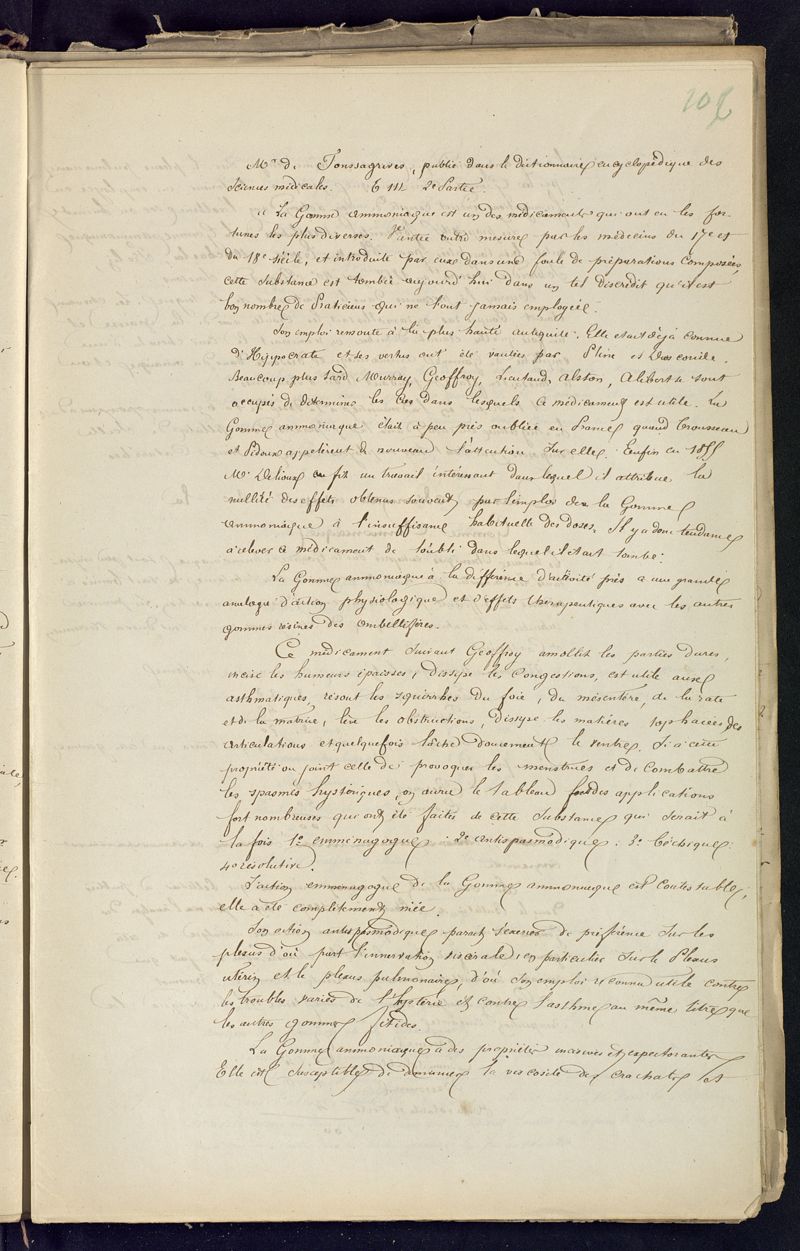 10
Mr de Fonssagrives, publié dans le dictionnaire encyclopédique des
sciences médicales. T III 2e Partie.
« La Gomme ammoniaque est un des médicaments qui ont eu les for-
tunes les plus diverses. Vantée outre mesure par les médecins du 17e et
du 18e siècle, et introduite par eux dans une foule de préparations composées,
cette substance est tombée aujourd'hui dans un tel discrédit qu'il est
bon nombre de Praticiens qui ne l'ont jamais employée.
Son emploi remonte à la plus haute antiquité. Elle était déjà connue
d'Hippocrate et ses vertus ont été vantées par Pline et Dioscoride.
Beaucoup plus tard, Murray, Geoffroy, Lieutaud, Alston, Alibert se sont
occupés de déterminer les cas dans lesquels ce médicament est utile. La
Gomme ammoniaque était à peu près oubliée en France quand Trousseau
et Pidoux appelèrent de nouveau l'attention sur elle. Enfin en 1855
Mr Delioux en fit un travail intéressant dans lequel il attribue la
nullité des effets obtenus souvent par l'emploi de la Gomme
ammoniaque à l'insuffisance habituelle des doses. Il y a donc tendance
à relever ce médicament de l'oubli dans lequel il était tombé.
La Gomme ammoniaque à la différence d'activité près a une grande
analogie d'action physiologique et d'effets thérapeutiques avec les autres
gommes résines des ombellifères.
Ce médicament suivant Geoffroy amollit les parties dures,
incise les humeurs épaisses, dissipe les congestions, est utile aux
asthmatiques, résout les squirrhes du foie, du mésentère, de la rate
et de la matrice, lève les obstructions, dissipe les matières tophacées des
articulations et quelquefois lâche doucement le ventre. Si à cette
propriété on joint celle de provoquer les menstrues et de combattre
les spasmes hystériques, on aura le tableau des applications
fort nombreuses qui ont été faites de cette substance qui serait à
la fois 1o emménagogue. 2o antispasmodique. 3o béchique.
4o résolutive.
L'action emménagogue de la Gomme ammoniaque est contestable,
elle a été complètement niée.
Son action antispasmodique paraît s'exercer de préférence sur les
plexus d'où part l'innervation viscérale, en particulier sur le Plexus
utérin et le plexus pulmonaire, d'où son emploi reconnu utile contre
les troubles variés de l'hystérie et contre l'asthme au même titre que
les autres gommes fétides.
La Gomme ammoniaque a des propriétés incisives et expectorantes
Elle est susceptible de diminuer la viscosité des crachats et